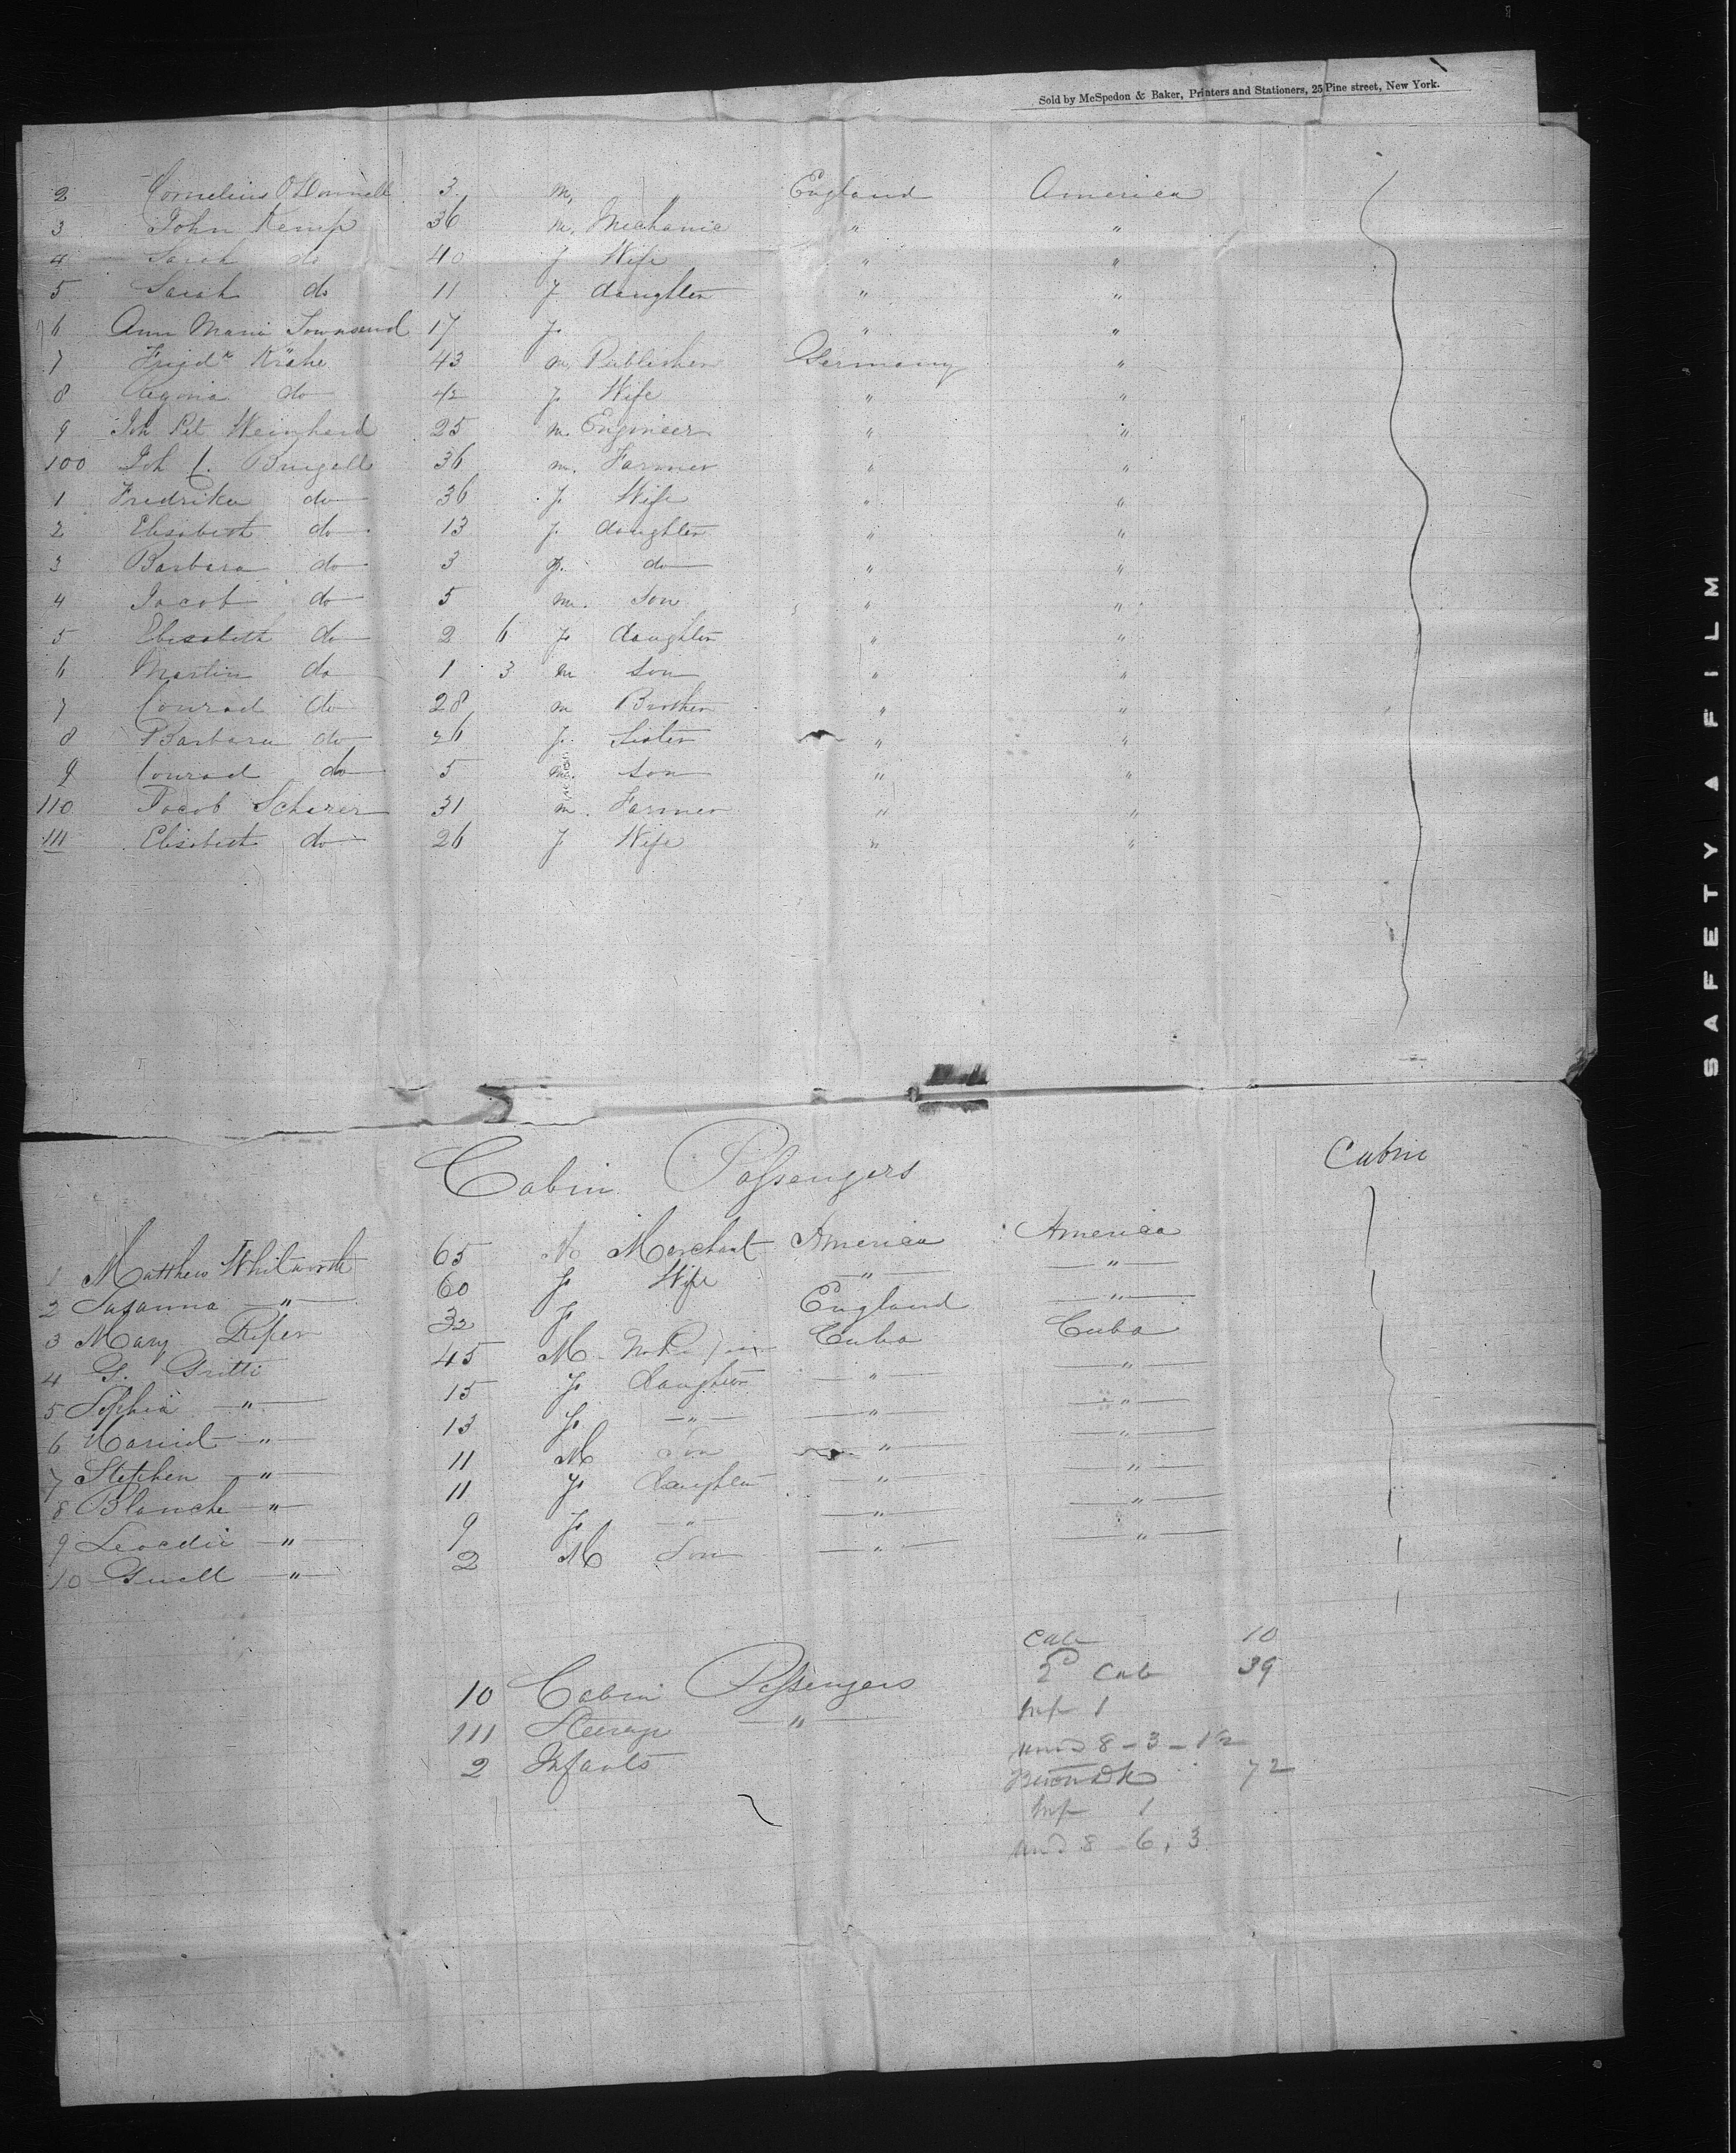 Sold by McSpedon & Baker, Printers and Stationers, 25 Pine street, New York.
2 Cornelius O'Donnell 3 m, England America
3 John Kemp 36 m, Mechanic " "
4 Sarah do 40 f Wife " "
5 Sarah do 11 f daughter " "
6 Ann Maria Townsend 17 f. " "
7 Krähe 43 m, Publisher Germany "
8 Regina do 42 f Wife " "
9 Joh Pet Weinhard 25 m. Engineer " "
100 Joh C. 36 m. Farmer " "
1 Fredrika do 36 f. Wife " "
2 Elisabeth do 13 f. daughter " "
3 Barbara do 3 f. do " "
4 Jacob do 5 m. Son " "
5 Elisabeth do 2 6 f. daughter " "
6 Martin do 1 3 m son " "
7 Conrad do 28 m Brother " "
8 Barbara do 26 f. Sister " "
9 Conrad do 5 m. son " "
110 Jacob Scherer 31 m. Farmer " "
111 Elisabeth do 26 f Wife " "
Cabin Passengers Cabin
1 Matthew Whitworth 65 M Merchant America America
2 Susanna " 60 f Wife " "
3 Mary 32 f England "
4 G. Gritti 45 M Cuba Cuba
5 Sophia " 15 f daughter " "
6 " 13 f " " "
7 Stephen " 11 M Son " "
8 Blanche " 11 f daughter " "
9 Leocadie " 9 f " " "
10 " 2 M Son " "
10 Cabin Passengers
111 Steerage "
2 Infants
Cab 10
2d Cab 39
Inf 1
und 8 - 3 -
72
Inf 1
und 8 - 6, 3
SAFETY FILM